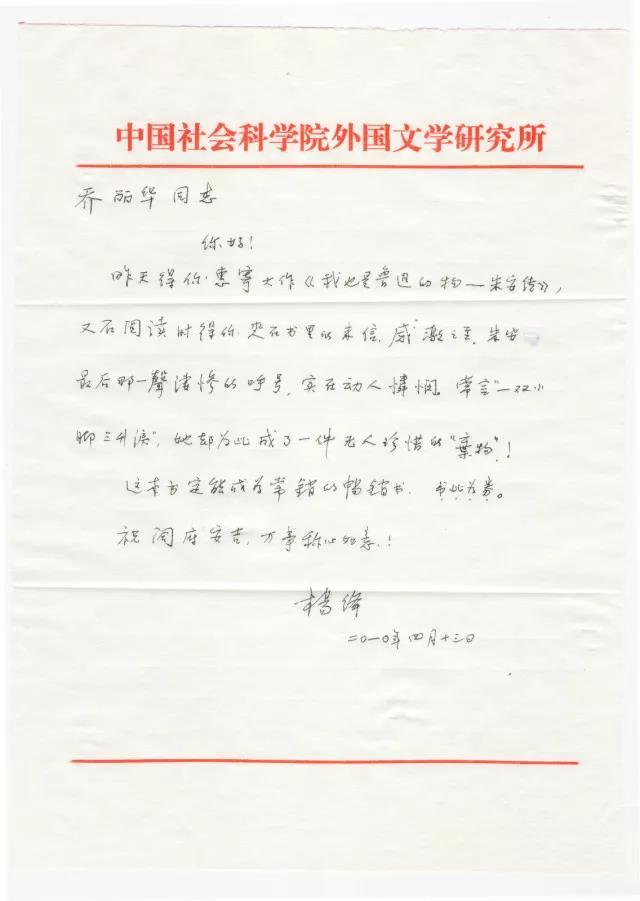 中国社会科学院外国文学研究所
乔丽华同志
你好！
昨天得你惠寄大作《我也是鲁迅的物—朱安传》，
又在阅读时得你夹在书里的来信，感激之至。朱安
最后那一聲凄惨的呼号，实在动人憐悯。常言“一双小
脚三升淚”，她却为此成了一件无人珍惜的“棄物”！
这本书定能成为常销的畅销书．书此为券。
祝阖府安吉，万事称心如意！
杨绛
二〇一〇年四月十三日